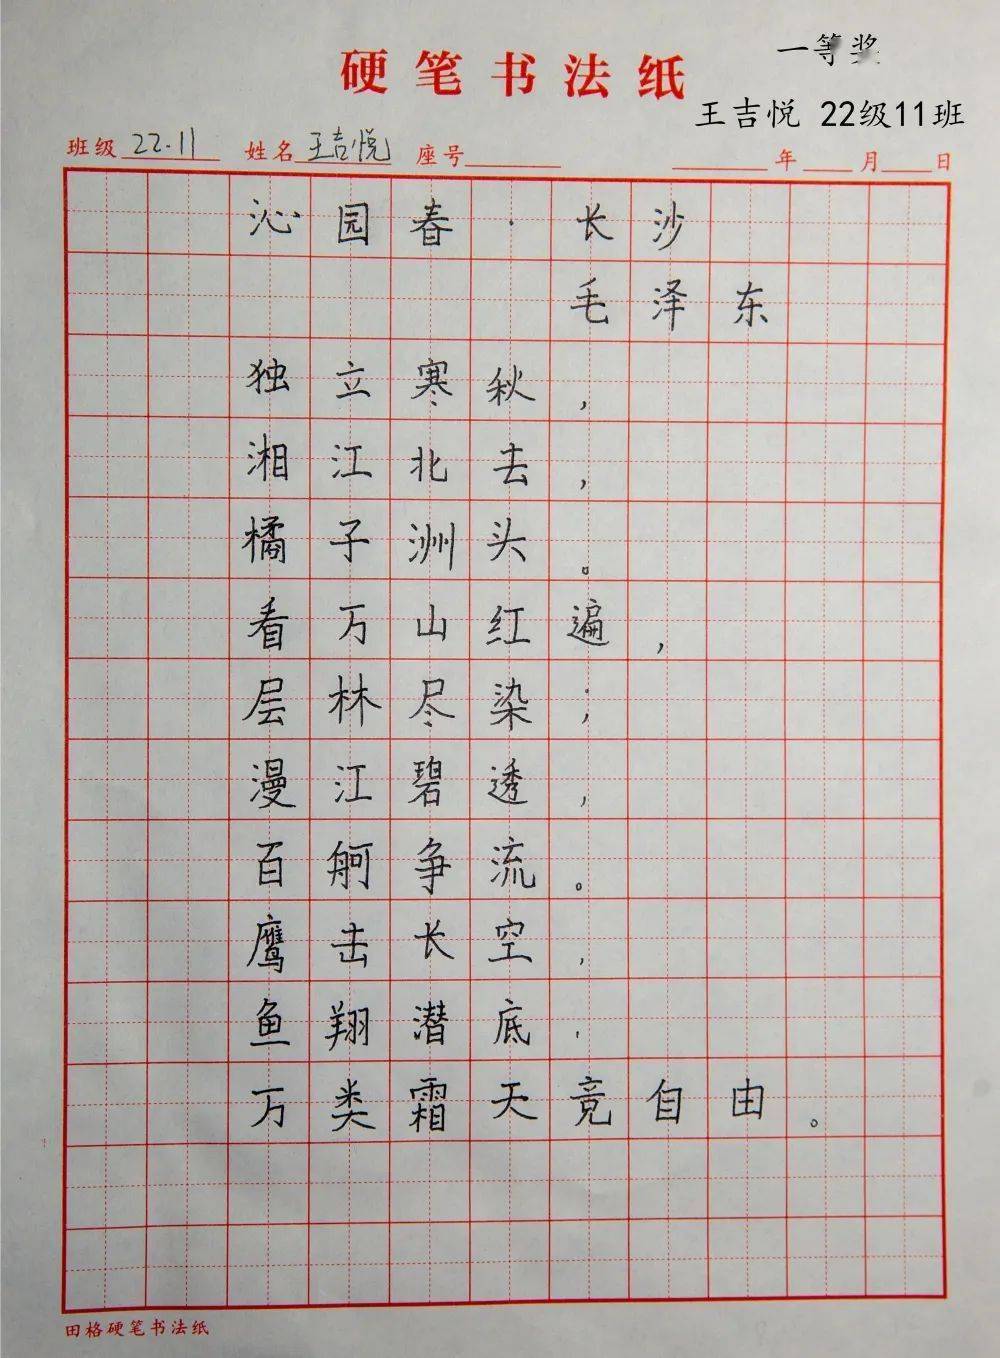 一等奖
硬笔书法纸
王吉悦 22级11班
班级 22.11 姓名 王吉悦 座号 年 月 日
沁园春·长沙
毛泽东
独立寒秋，
湘江北去，
橘子洲头。
看万山红遍，
层林尽染；
漫江碧透，
百舸争流。
鹰击长空，
鱼翔潜底，
万类霜天竞自由。
田格硬笔书法纸